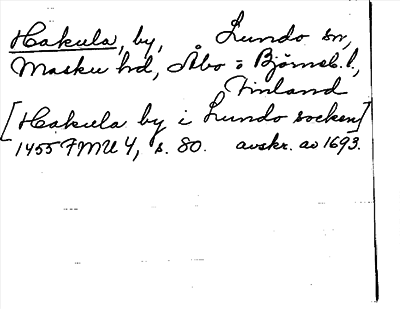 Hakula, by, Lundo sn,
Masku hd, Åbo o Björneb. l.,
Finland
[Hakula by i Lundo socken]
1455 FMU 4, s. 80. avskr. av 1693.